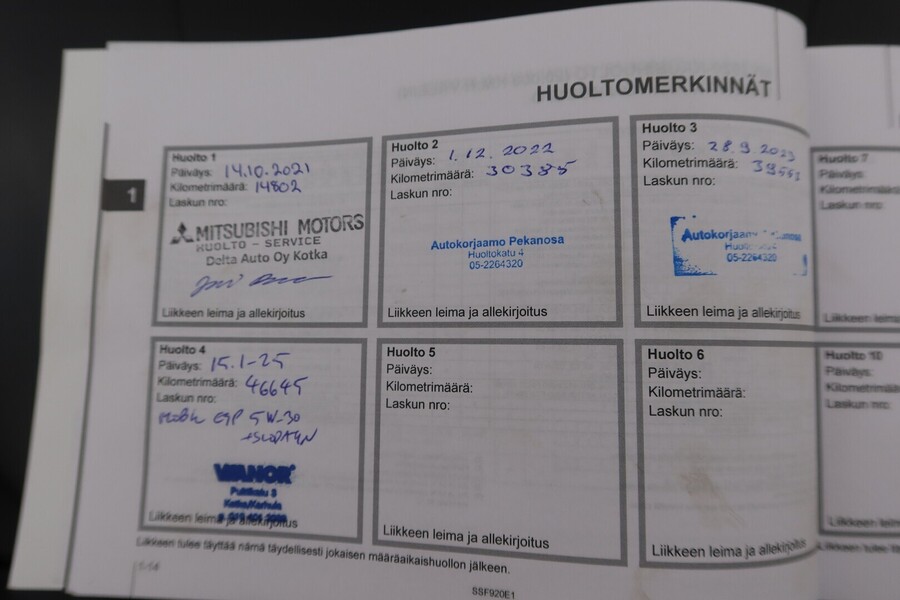 HUOLTOMERKINNÄT
1
Huolto 1
Päiväys: 14.10.2021
Kilometrimäärä: 14802
Laskun nro:
MITSUBISHI MOTORS
HUOLTO - SERVICE
Delta Auto Oy Kotka
Liikkeen leima ja allekirjoitus
Huolto 2
Päiväys: 1.12.2022
Kilometrimäärä: 30385
Laskun nro:
Autokorjaamo Pekanosa
Huoltokatu 4
05-2264320
Liikkeen leima ja allekirjoitus
Huolto 3
Päiväys: 28.9.2023
Kilometrimäärä:
Laskun nro:
05-2264320
Liikkeen leima ja allekirjoitus
Huolto 7
Päiväys:
Laskun nro:
Huolto 4
Päiväys: 15.1-25
Kilometrimäärä: 46645
Laskun nro:
5W-30
WIANOR
Kotka/Karhula
Liikkeen leima ja allekirjoitus
Huolto 5
Päiväys:
Kilometrimäärä:
Laskun nro:
Liikkeen leima ja allekirjoitus
Huolto 6
Päiväys:
Kilometrimäärä:
Laskun nro:
Liikkeen leima ja allekirjoitus
Huolto 10
Päiväys:
Laskun nro:
Liikkeen tulee täyttää nämä täydellisesti jokaisen määräaikaishuollon jälkeen.
1-14
SSF920E1